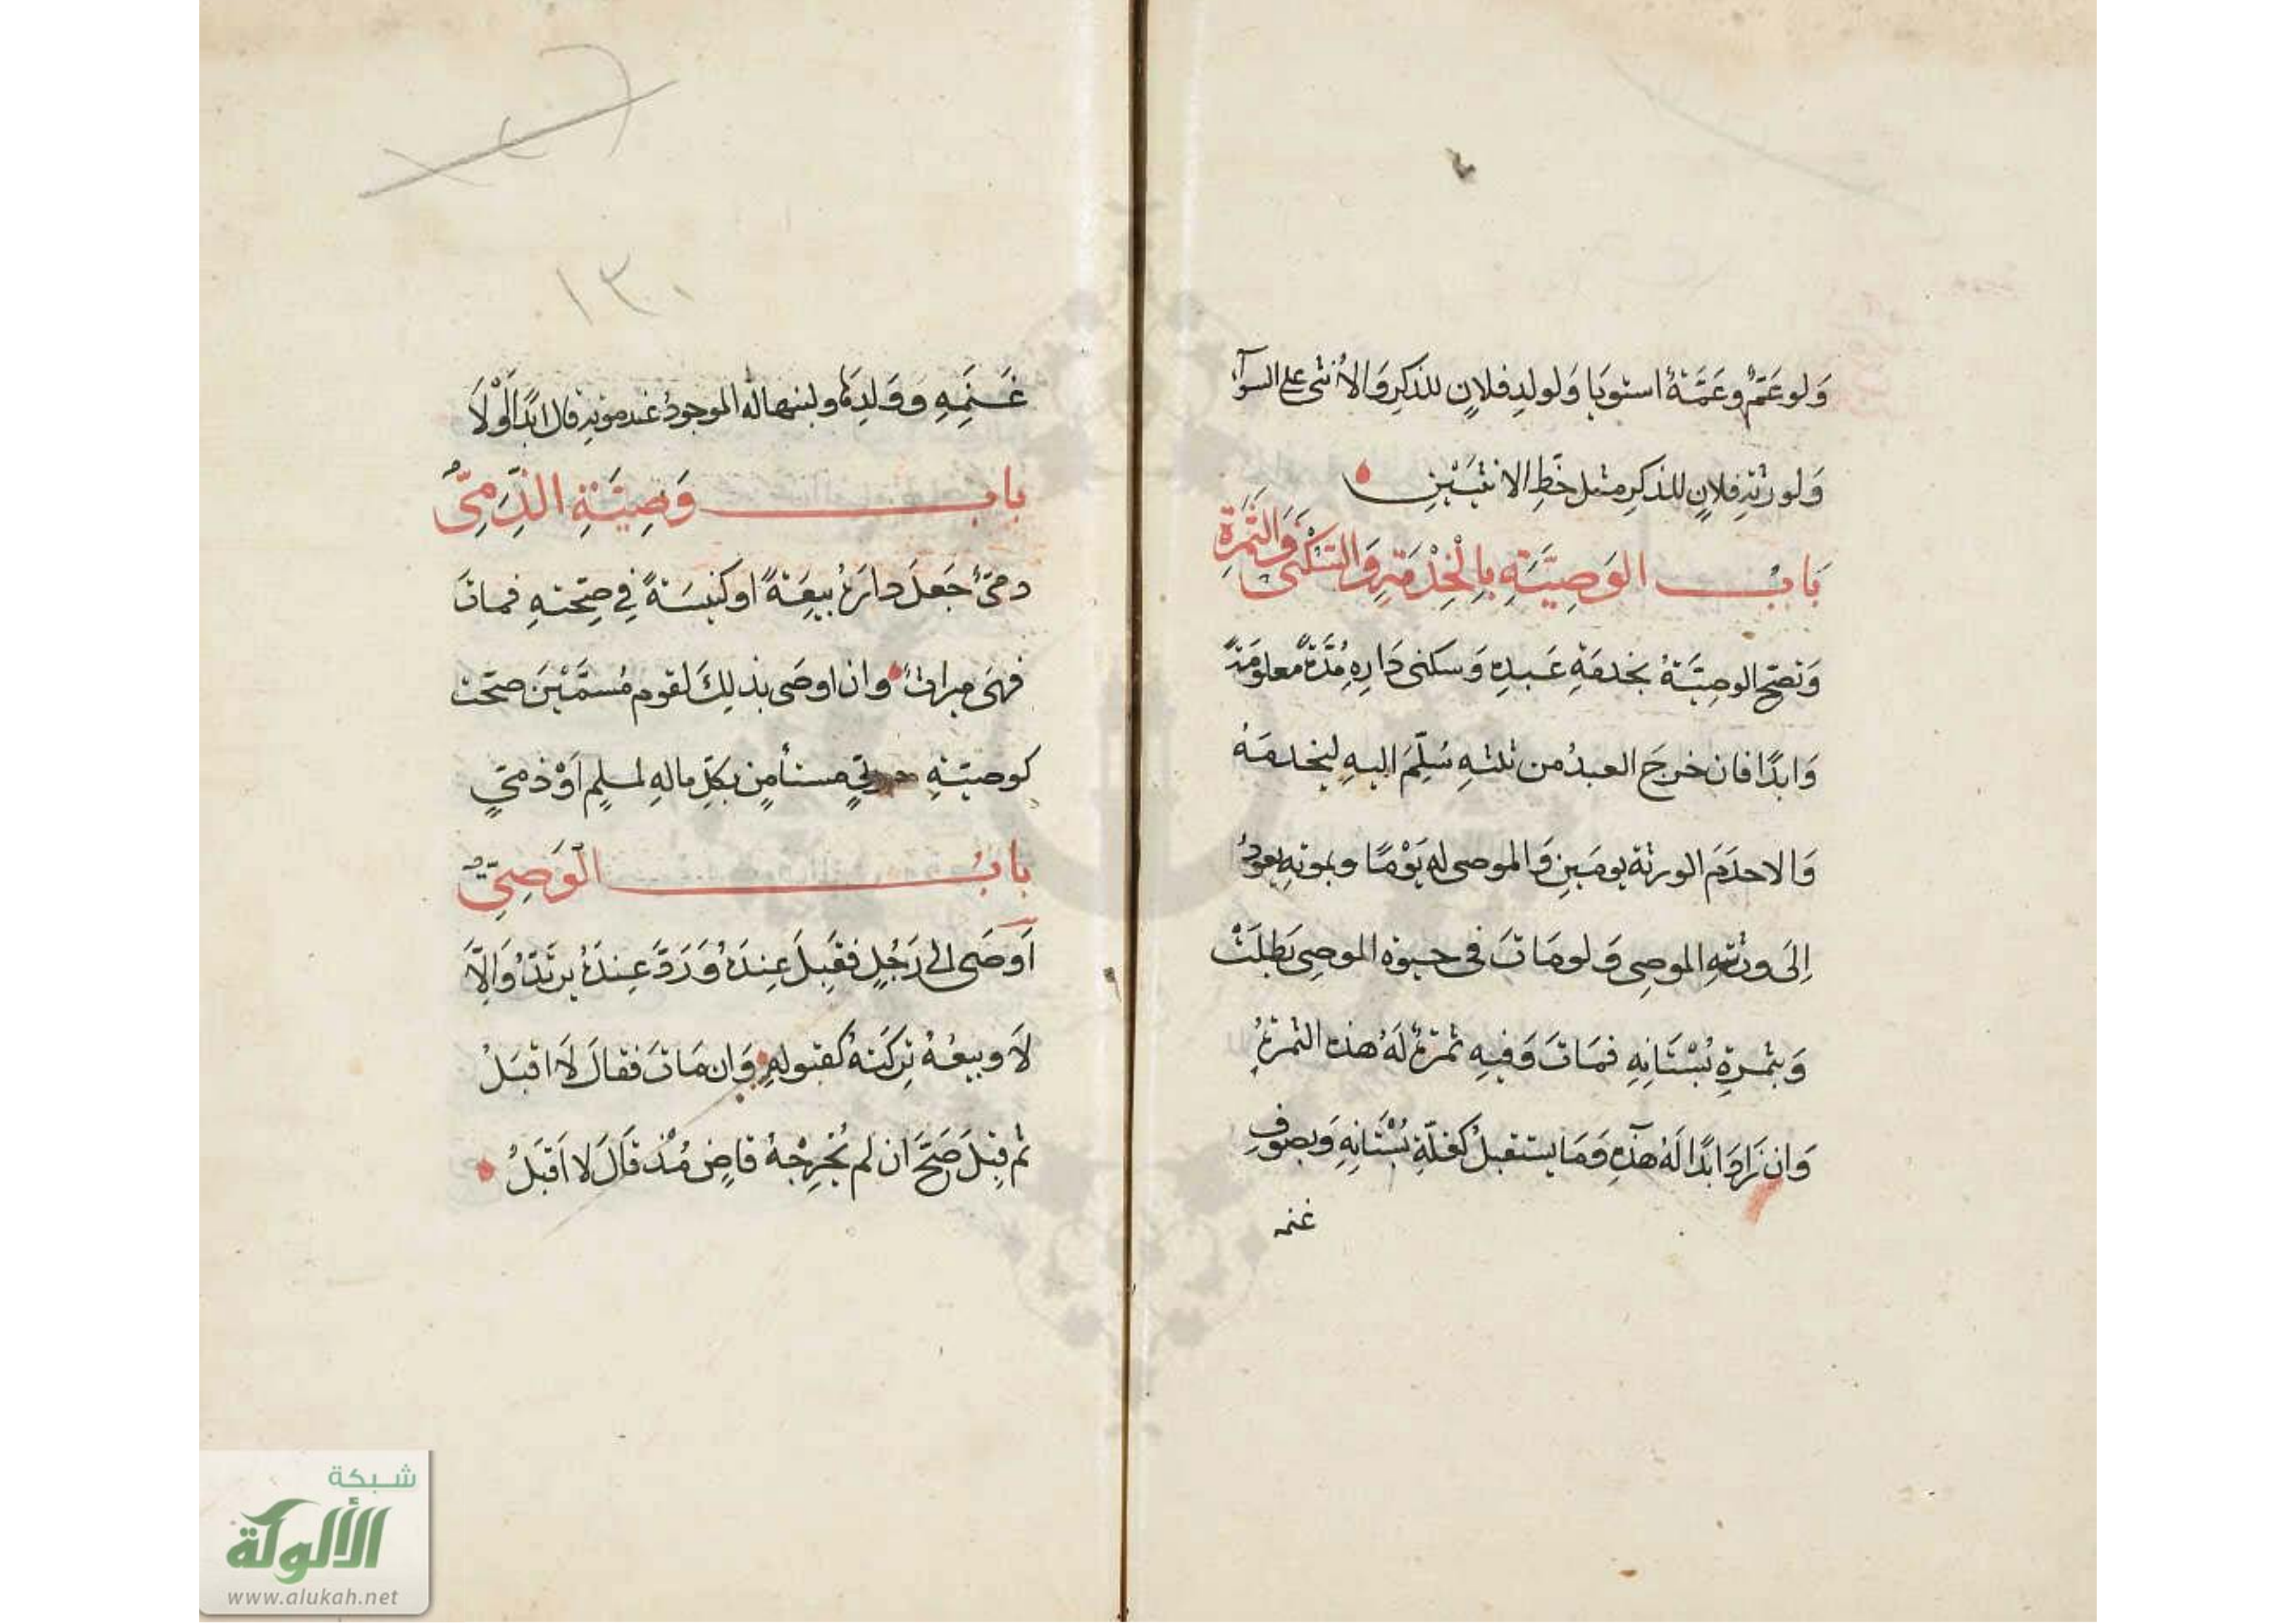 وَلو عَمٌّ وعَمَّةٌ استوَيا وَلولدِ فلانٍ للذكرِ وَالأُنثى على السوآء
وَلورثةِ فلانٍ للذكرِ مثل حَظِّ الانثيَيْنِ
بَابُ الوَصِيَّةِ بِالْخِدْمَةِ وَالسُّكْنَى وَالثَّمَرَةِ
وَتصحّ الوصيَّةُ بخدمَةِ عَبدِهِ وَسكنى دَارِهِ مُدَّةً معلومَةً
وَابدًا فان خرجَ العبدُ من ثلثهِ سُلِّمَ اليهِ ليخدمَهُ
وَالا خدَمَ الورثة يومَينِ وَالموصى له يَوْمًا وبموتهِ يعودُ
اِلَى ورثةِ الموصِى وَلو مَاتَ فى حيوة الموصِى بَطلَتْ
وَبثمرةِ بُسْتَانِهِ فمَاتَ وَفيهِ ثمرَةٌ لَهُ هذه الثمرَةُ
وَان زَادَ ابدًا لَهُ هذِه وَمَا يستقبلُ كغلّةِ بُسْتَانِهِ وَبصُوفِ
غنمه
غَنَمِهِ وَوَلدِهَا ولبنهَا لَه الموجودُ عند موتهِ قال ابدًا اَوْلَا
باب وَصِيَّةِ الذِّمِيِّ
ذمىٌّ جَعَلَ دارَهُ بيعَةً او كنيسَةً في صِحَّتهِ فماتَ
فهىَ ميراثٌ وان اوصَى بذلِكَ لقوم مُسمَّيْنَ صحّت
كوصيّةِ حربيٍّ مستأمنٍ بكلِّ مالهِ لمسلمٍ اَوْ ذميٍّ
بابُ الوَصِيِّ
اَوصَى الى رَجُلٍ فقَبِلَ عِندَهُ وَرَدَّ عِندَهُ يرتَدّ وَاِلاَّ
لَا وبيعُهُ تَرِكَتَهُ كقبولهِ وَان مَاتَ فقالَ لَا اقبَلُ
ثم قبلَ صَحَّ ان لم يُخْرِجْهُ قاضٍ مُنْذ قَالَ لا اَقبَلُ
١٣٠
شبكة
الألوكة
www.alukah.net